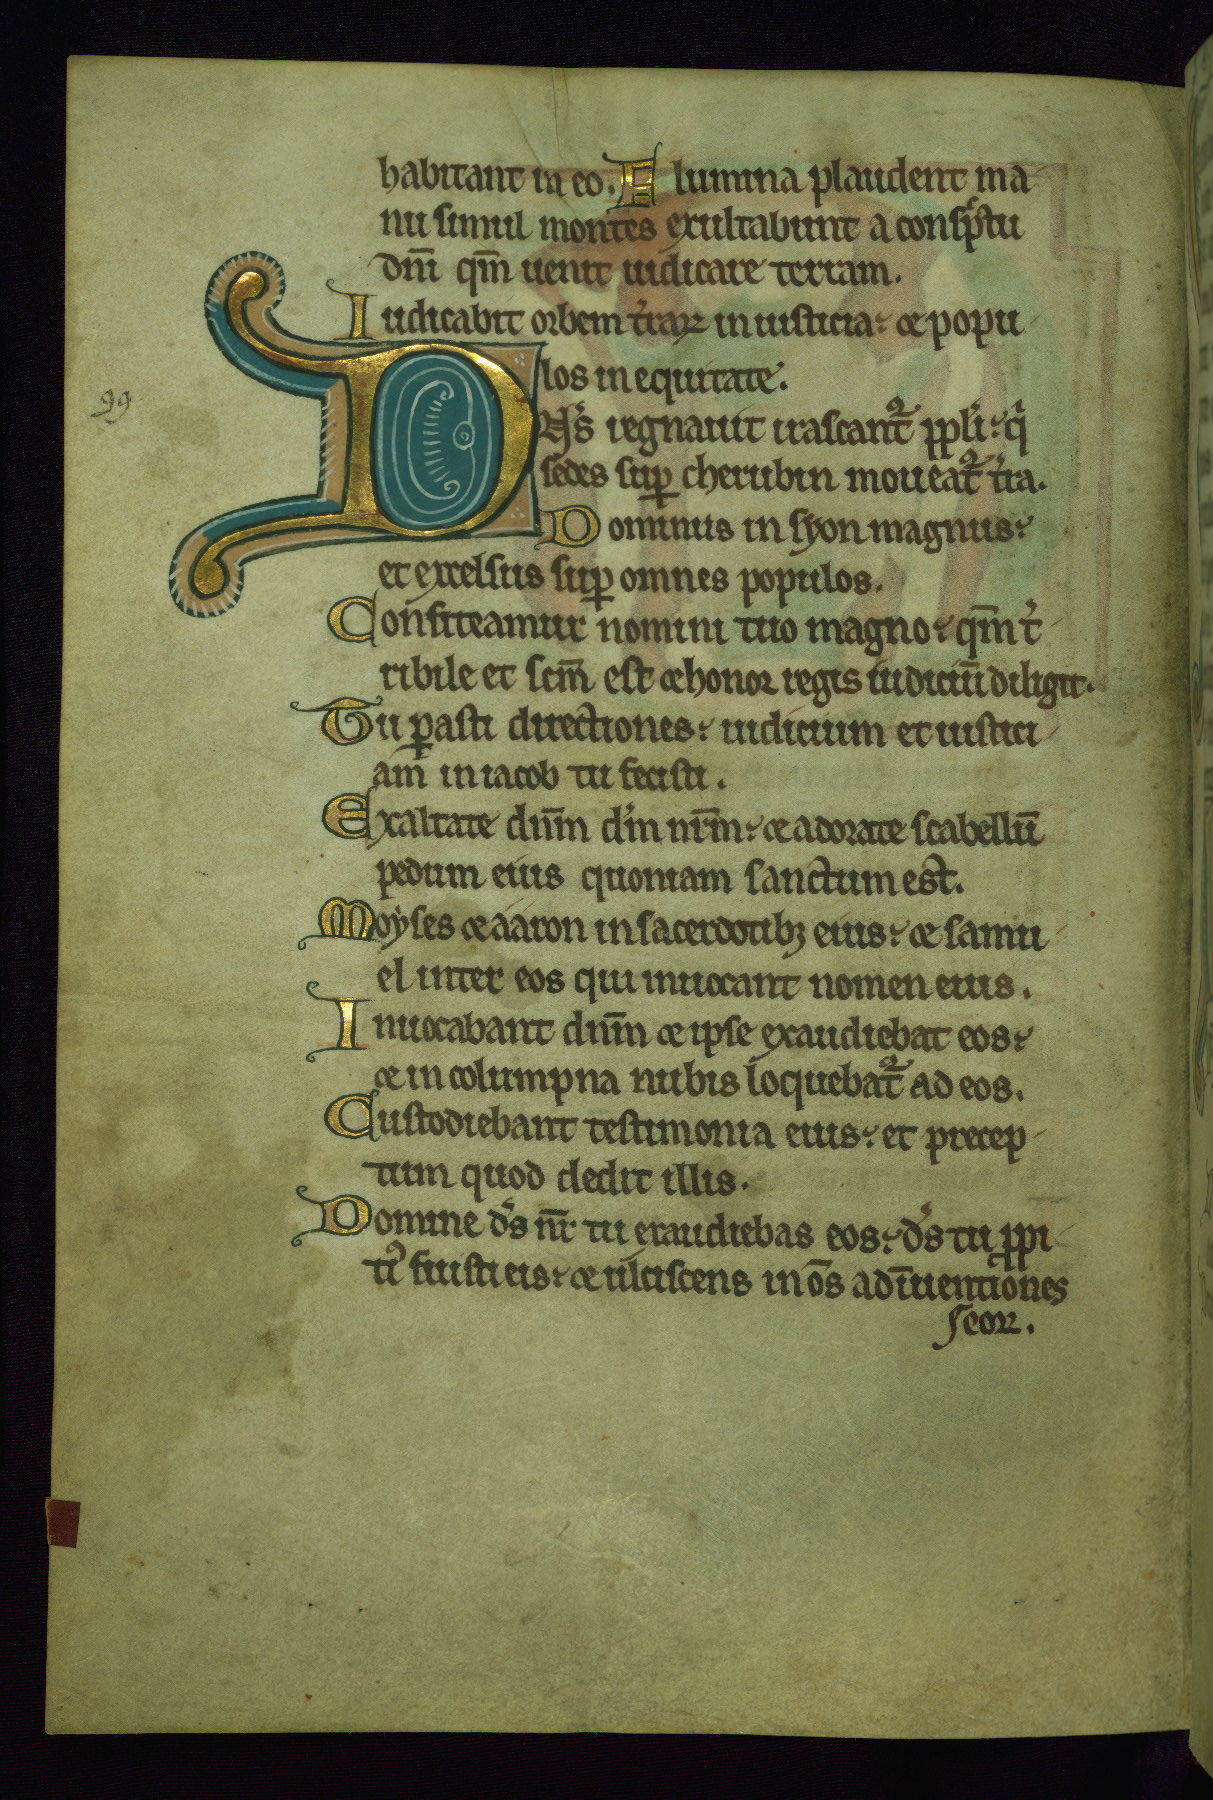 habitant in eo. Flumina plaudent ma
nu simul montes exultabunt a consp̄ctu
dn̄i qm̄ uenit iudicare terram.
Iudicabit orbem t̓rarꝝ in iusticia: & popu
los in equitate.
99
DN̄s regnauit irascant᷑ ppl̓i: q̓
sedes suꝑ cherubin moueat᷑ t̓ra.
Dominus in syon magnus:
et excelsus suꝑ omnes populos.
Confiteamur nomini tuo magno: qm̄ t̓
ribile et sc̄m est & honor regis iudiciū diligit.
Tu ꝑasti directiones: iudicium et iustici
am in iacob tu fecisti.
Exaltate dn̄m d̓m nr̄m: & adorate scabellū
pedum eius quoniam sanctum est.
Moyses & aaron in sacerdotibꝫ eius: & samu
el inter eos qui inuocant nomen eius.
Inuocabant dn̄m & ipse exaudiebat eos:
& in columpna nubis loquebat᷑ ad eos.
Custodiebant testimonia eius: et precep
tum quod dedit illis.
Domine d̓s nr̄ tu exaudiebas eos: d̓s tu ꝓpi
ti᷒ fuisti eis: & ulciscens in ōs adīuentiones
seoꝝ.